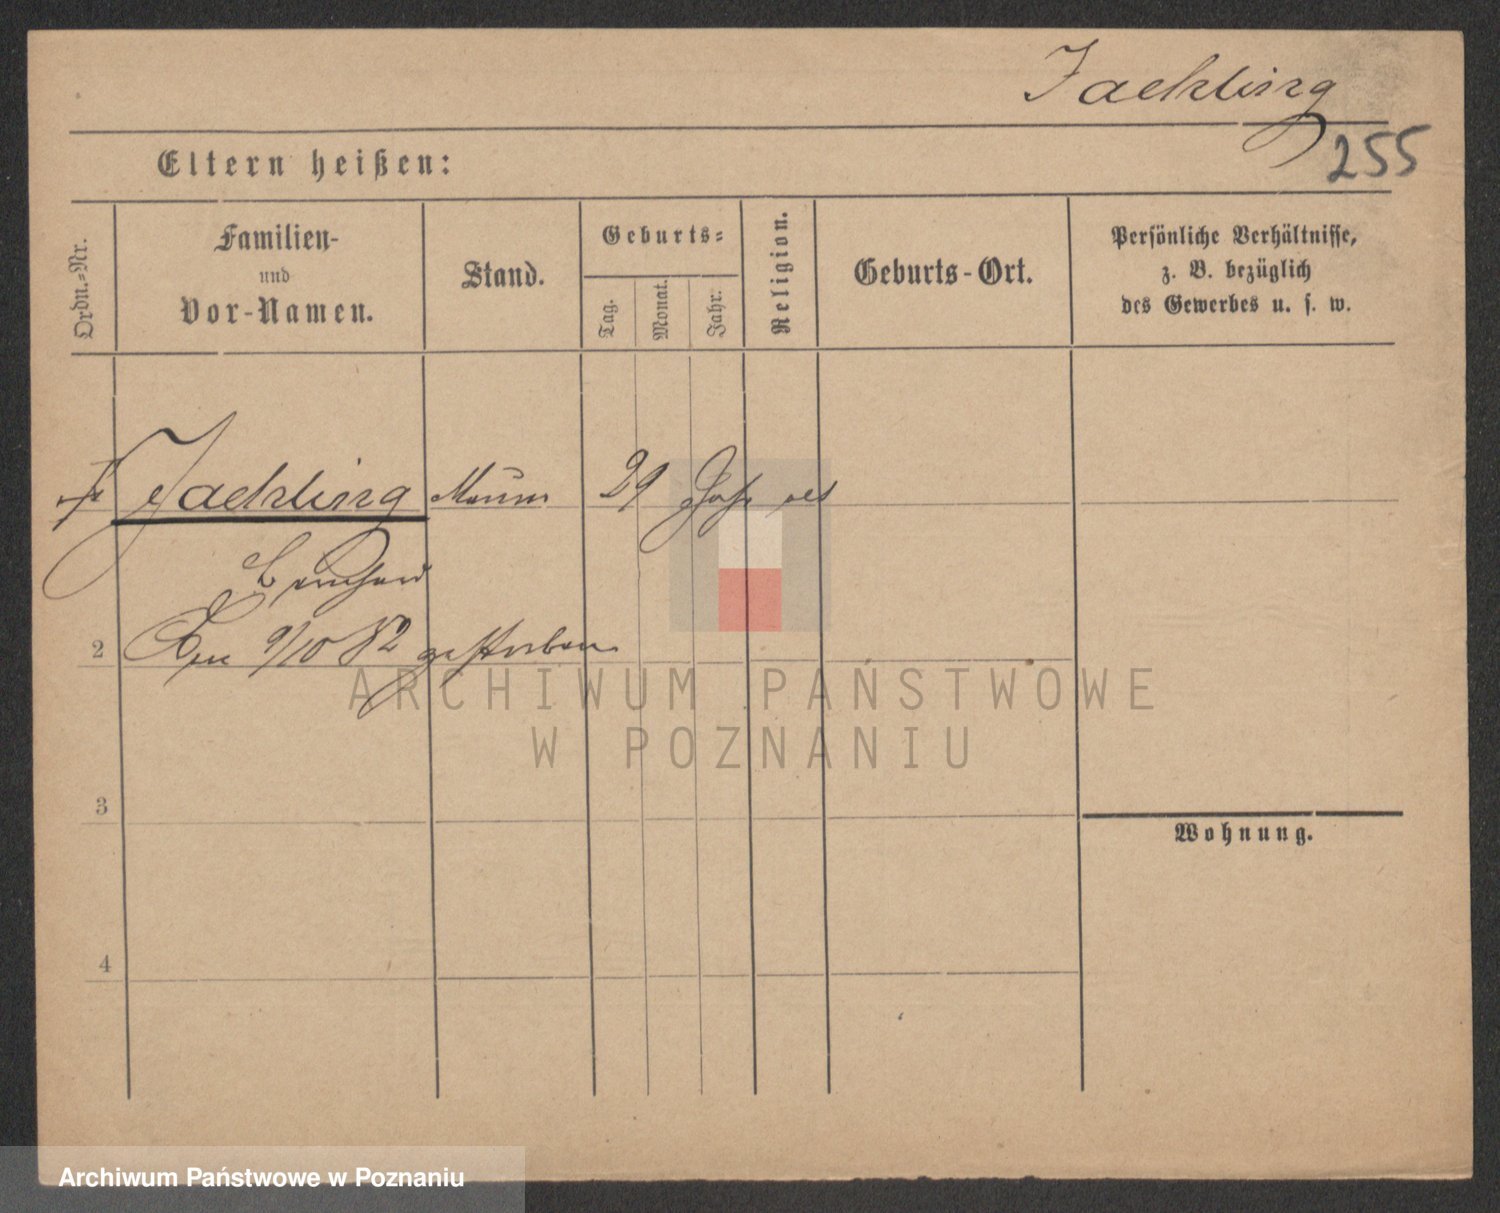 Jaekling
255
Eltern heißen:
Ordn.-Nr.
Familien-
und
Vor-Namen.
Stand.
Geburts-
Tag.
Monat.
Jahr.
Religion.
Geburts-Ort.
Persönliche Verhältnisse,
z. B. bezüglich
des Gewerbes u. s. w.
Jaekling 29 Jahr alt
Bernhard
2 Am 9/10 82 gestorben
3
4
Wohnung.
ARCHIWUM PAŃSTWOWE
W POZNANIU
Archiwum Państwowe w Poznaniu